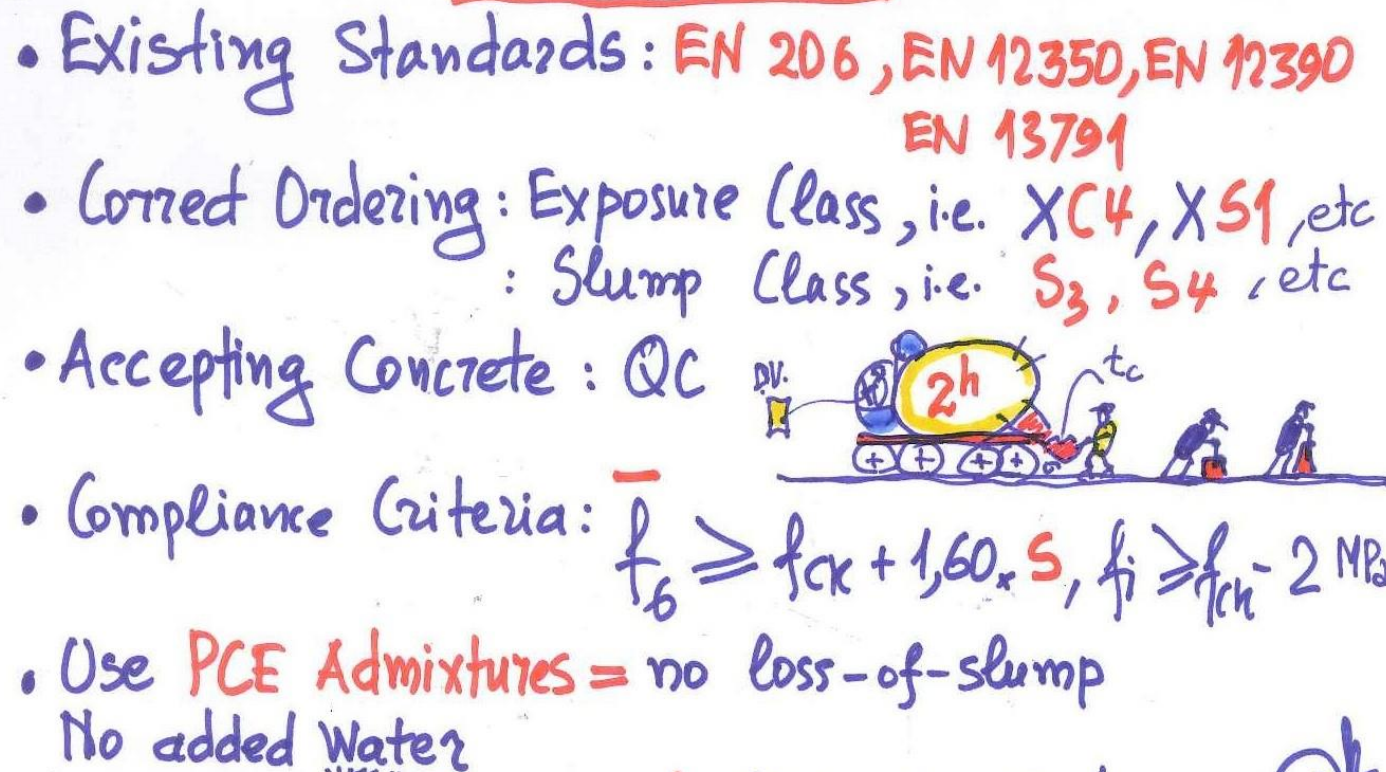 • Existing Standards: EN 206, EN 12350, EN 12390
EN 13791
• Correct Ordering: Exposure Class, i.e. XC4, XS1, etc
: Slump Class, i.e. S3, S4, etc
• Accepting Concrete: QC
D.V.
2h
tc
• Compliance Criteria: f̅6 ≥ fck + 1,60 x S, fi ≥ fck - 2 MPa
• Use PCE Admixtures = no loss-of-slump
No added Water